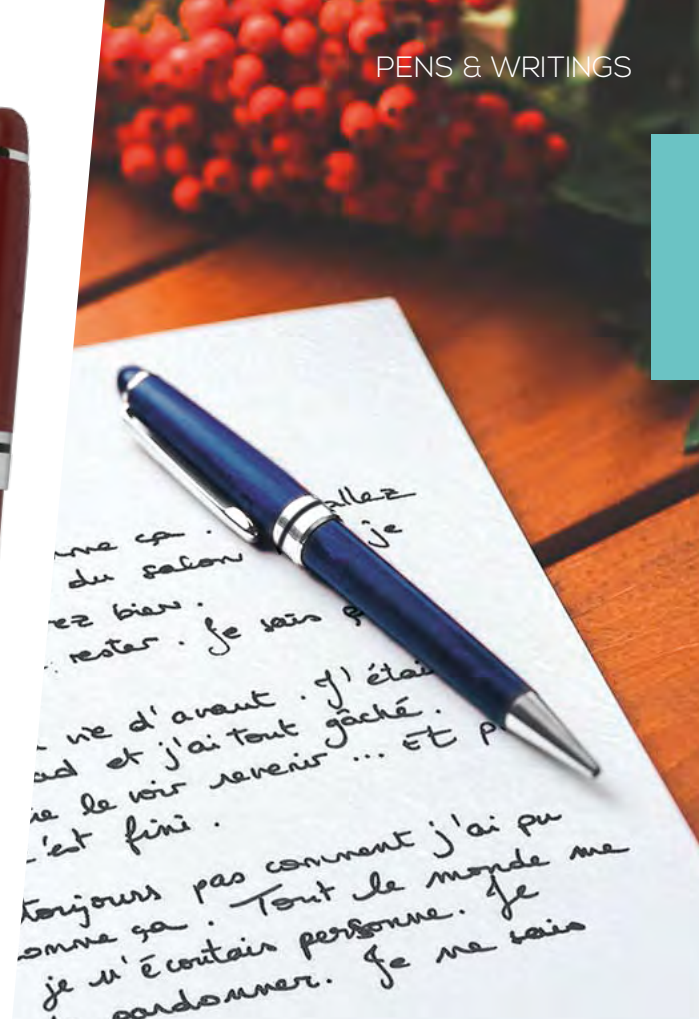 PENS & WRITINGS
allez
ça .
du salon je
ez bien .
rester . Je sais
vie d'avant . J'étai
ad et j'ai tout gâché .
le voir revenir ... Et p
'est fini .
toujours pas comment j'ai pu
omme ça . Tout le monde me
je n'écoutais personne . Je
pardonner . Je ne sais